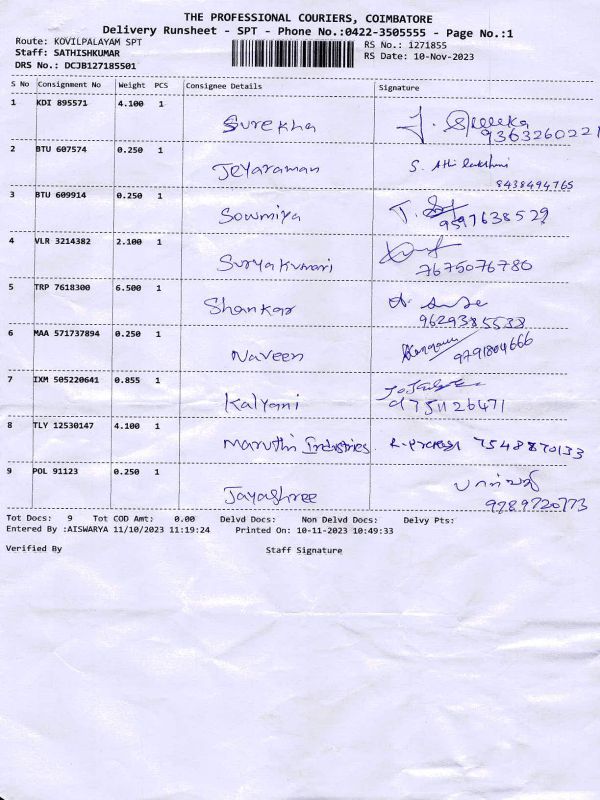 THE PROFESSIONAL COURIERS, COIMBATORE
Delivery Runsheet - SPT - Phone No.:0422-3505555 - Page No.:1
Route: KOVILPALAYAM SPT
Staff: SATHISHKUMAR
DRS No.: DCJB127185501
RS No.: 1271855
RS Date: 10-Nov-2023
S No Consignment No Weight PCS Consignee Details Signature
1 KDI 895571 4.100 1 Surekha
9363260221
2 BTU 607574 0.250 1 Jeyaraman S. Athi lakshmi
8438494765
3 BTU 609914 0.250 1 Sowmiya T.
9597638529
4 VLR 3214382 2.100 1 Suryakumari
7675076780
5 TRP 7618300 6.500 1 Shankar
9629385538
6 MAA 571737894 0.250 1 Naveen
9791804666
7 IXM 505220641 0.855 1 Kalyani
9751126471
8 TLY 12530147 4.100 1 Maruthi Industries. 7548870133
9 POL 91123 0.250 1 Jayashree
9789720773
Tot Docs: 9 Tot COD Amt: 0.00 Delvd Docs: Non Delvd Docs: Delvy Pts:
Entered By :AISWARYA 11/10/2023 11:19:24 Printed On: 10-11-2023 10:49:33
Verified By Staff Signature